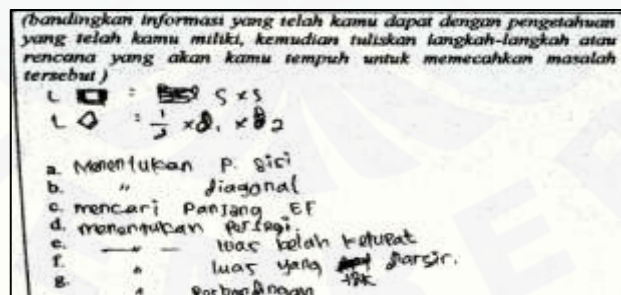 (bandingkan informasi yang telah kamu dapat dengan pengetahuan
yang telah kamu miliki, kemudian tuliskan langkah-langkah atau
rencana yang akan kamu tempuh untuk memecahkan masalah
tersebut)
L □ : S x S
L ◇ : 1/2 x d1 x d2
a. Menentukan P. Sisi
b. " diagonal
c. mencari Panjang EF
d. menentukan Persegi
e. — " — luas belah ketupat
f. " luas yang diarsir.
g. " Perbandingan